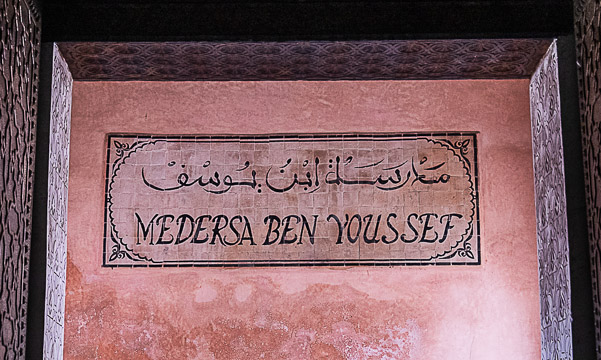 مَدْرَسَـة اِبْنُ يُوسُفْ
MEDERSA BEN YOUSSEF